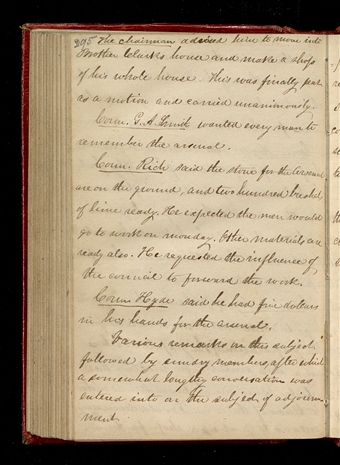 205 The chairman advised him to move into
Brother Clarks house and make a shop
of his whole house. This was finally put
as a motion and carried unanimously.
Coun. G. A. Smith wanted every man to
remember the arsenal.
Coun. Rich said the stone for the arsenal
are on the ground, and two hundred bushel
of lime ready. He expected the men would
go to work on monday. Other materials are
ready also. He requested the influence of
the council to forward the work.
Coun Hyde said he had five dollars
in his hands for the arsenal.
Various remarks on the subject
followed by sundry members, after which
a somewhat lengthy conversation was
entered into on the subject of adjourn-
ment.